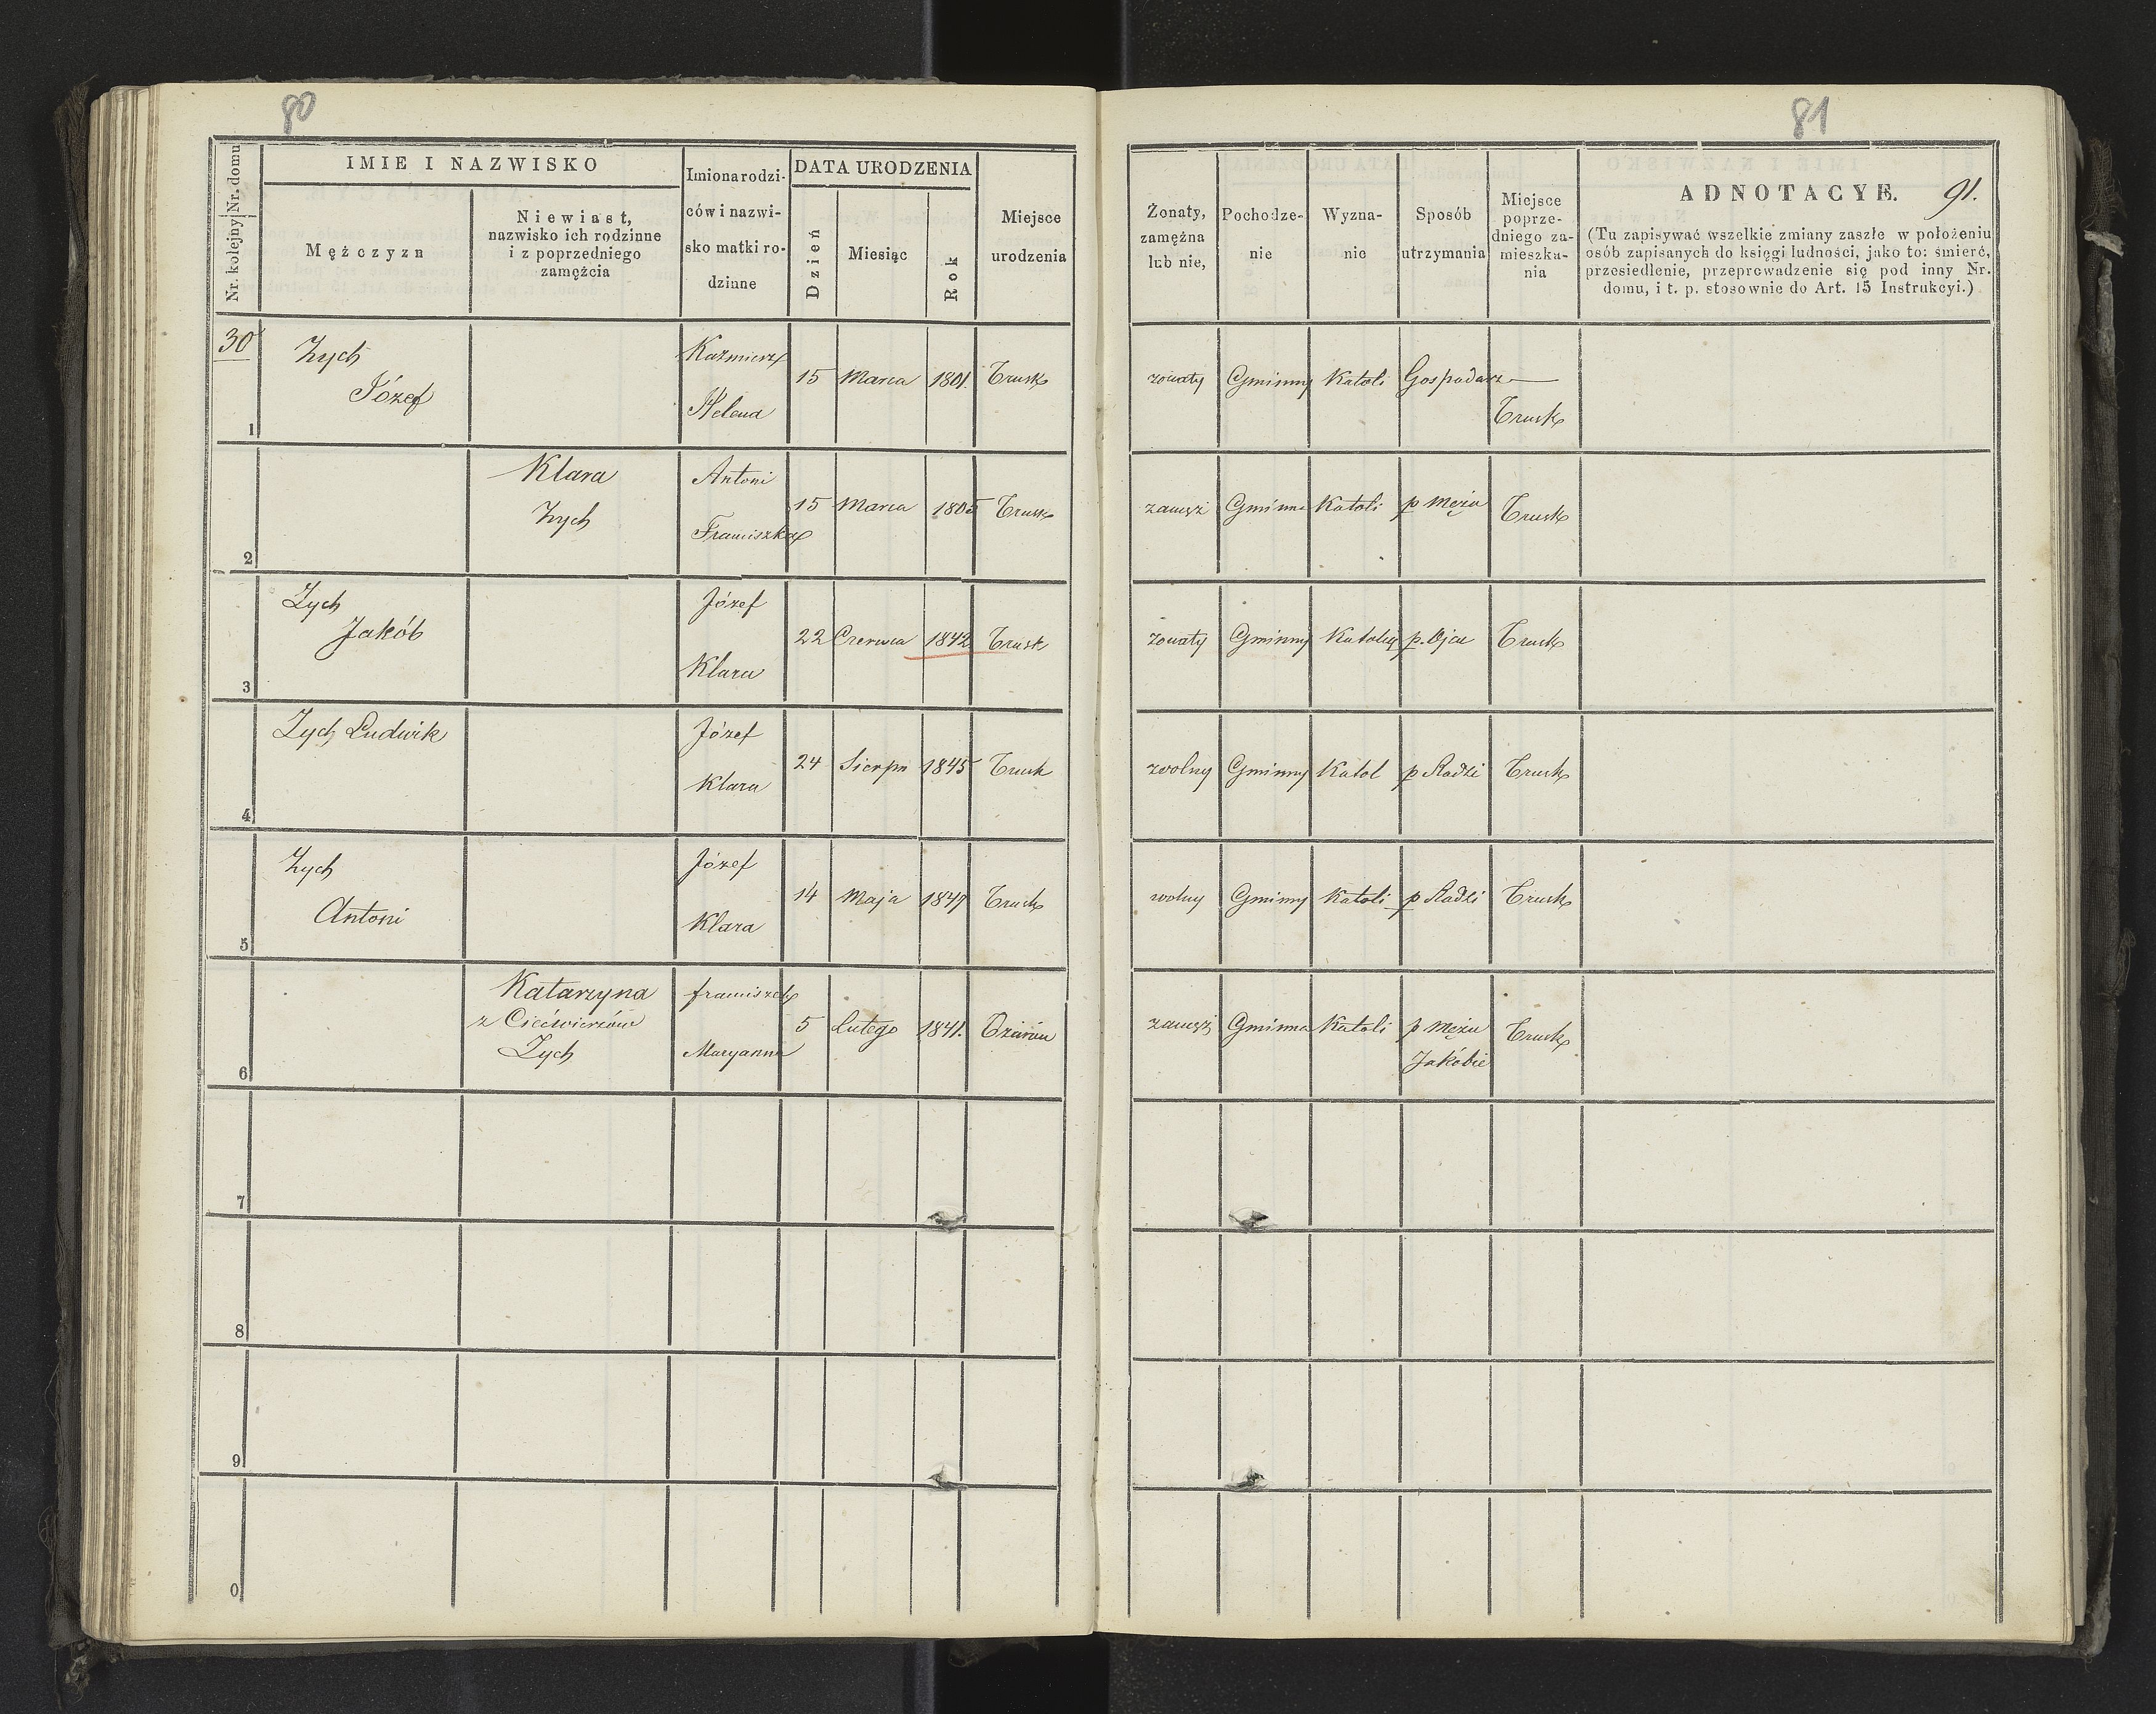 80
Nr. kolejny Nr. domu
IMIE I NAZWISKO
Mężczyzn
Niewiast,
nazwisko ich rodzinne
i z poprzedniego
zamężcia
Imiona rodzi-
ców i nazwi-
sko matki ro-
dzinne
DATA URODZENIA
Dzień
Miesiąc
Rok
Miejsce
urodzenia
30
1
Zych
Józef
Kazmierz
Helena
15 Marca 1801. Trusk
2
Klara
Zych
Antoni
Franciszka
15 Marca 1805 Trusk
3
Zych
Jakób
Józef
Klara
22 Czerwca 1842 Trusk
4
Zych Ludwik
Józef
Klara
24 Sierpn 1845 Trusk
5
Zych
Antoni
Józef
Klara
14 Maja 1847 Trusk
6
Katarzyna
z Ciećwierzów
Zych
franciszek
Maryanna
5 Lutego 1841.
7
8
9
0
81
Żonaty,
zamężna
lub nie,
Pochodze-
nie
Wyzna-
nie
Sposób
utrzymania
Miejsce
poprze-
dniego za-
mieszka-
nia
ADNOTACYE. 91.
(Tu zapisywać wszelkie zmiany zaszłe w położeniu
osób zapisanych do księgi ludności, jako to: śmierć,
przesiedlenie, przeprowadzenie się pod inny Nr.
domu, i t. p. stosownie do Art. 15 Instrukcyi.)
żonaty Gminny Katoli Gospodarz
Trusk
zamęż Gminna Katoli p Mężu Trusk
żonaty Gminny Katolig p. Ojcu Trusk
zwolny Gminny Katol p Rodzi Trusk
wolny Gminny Katoli p Rodzi Trusk
zamęż Gminna Katoli p Mężu
Jakóbie
Trusk